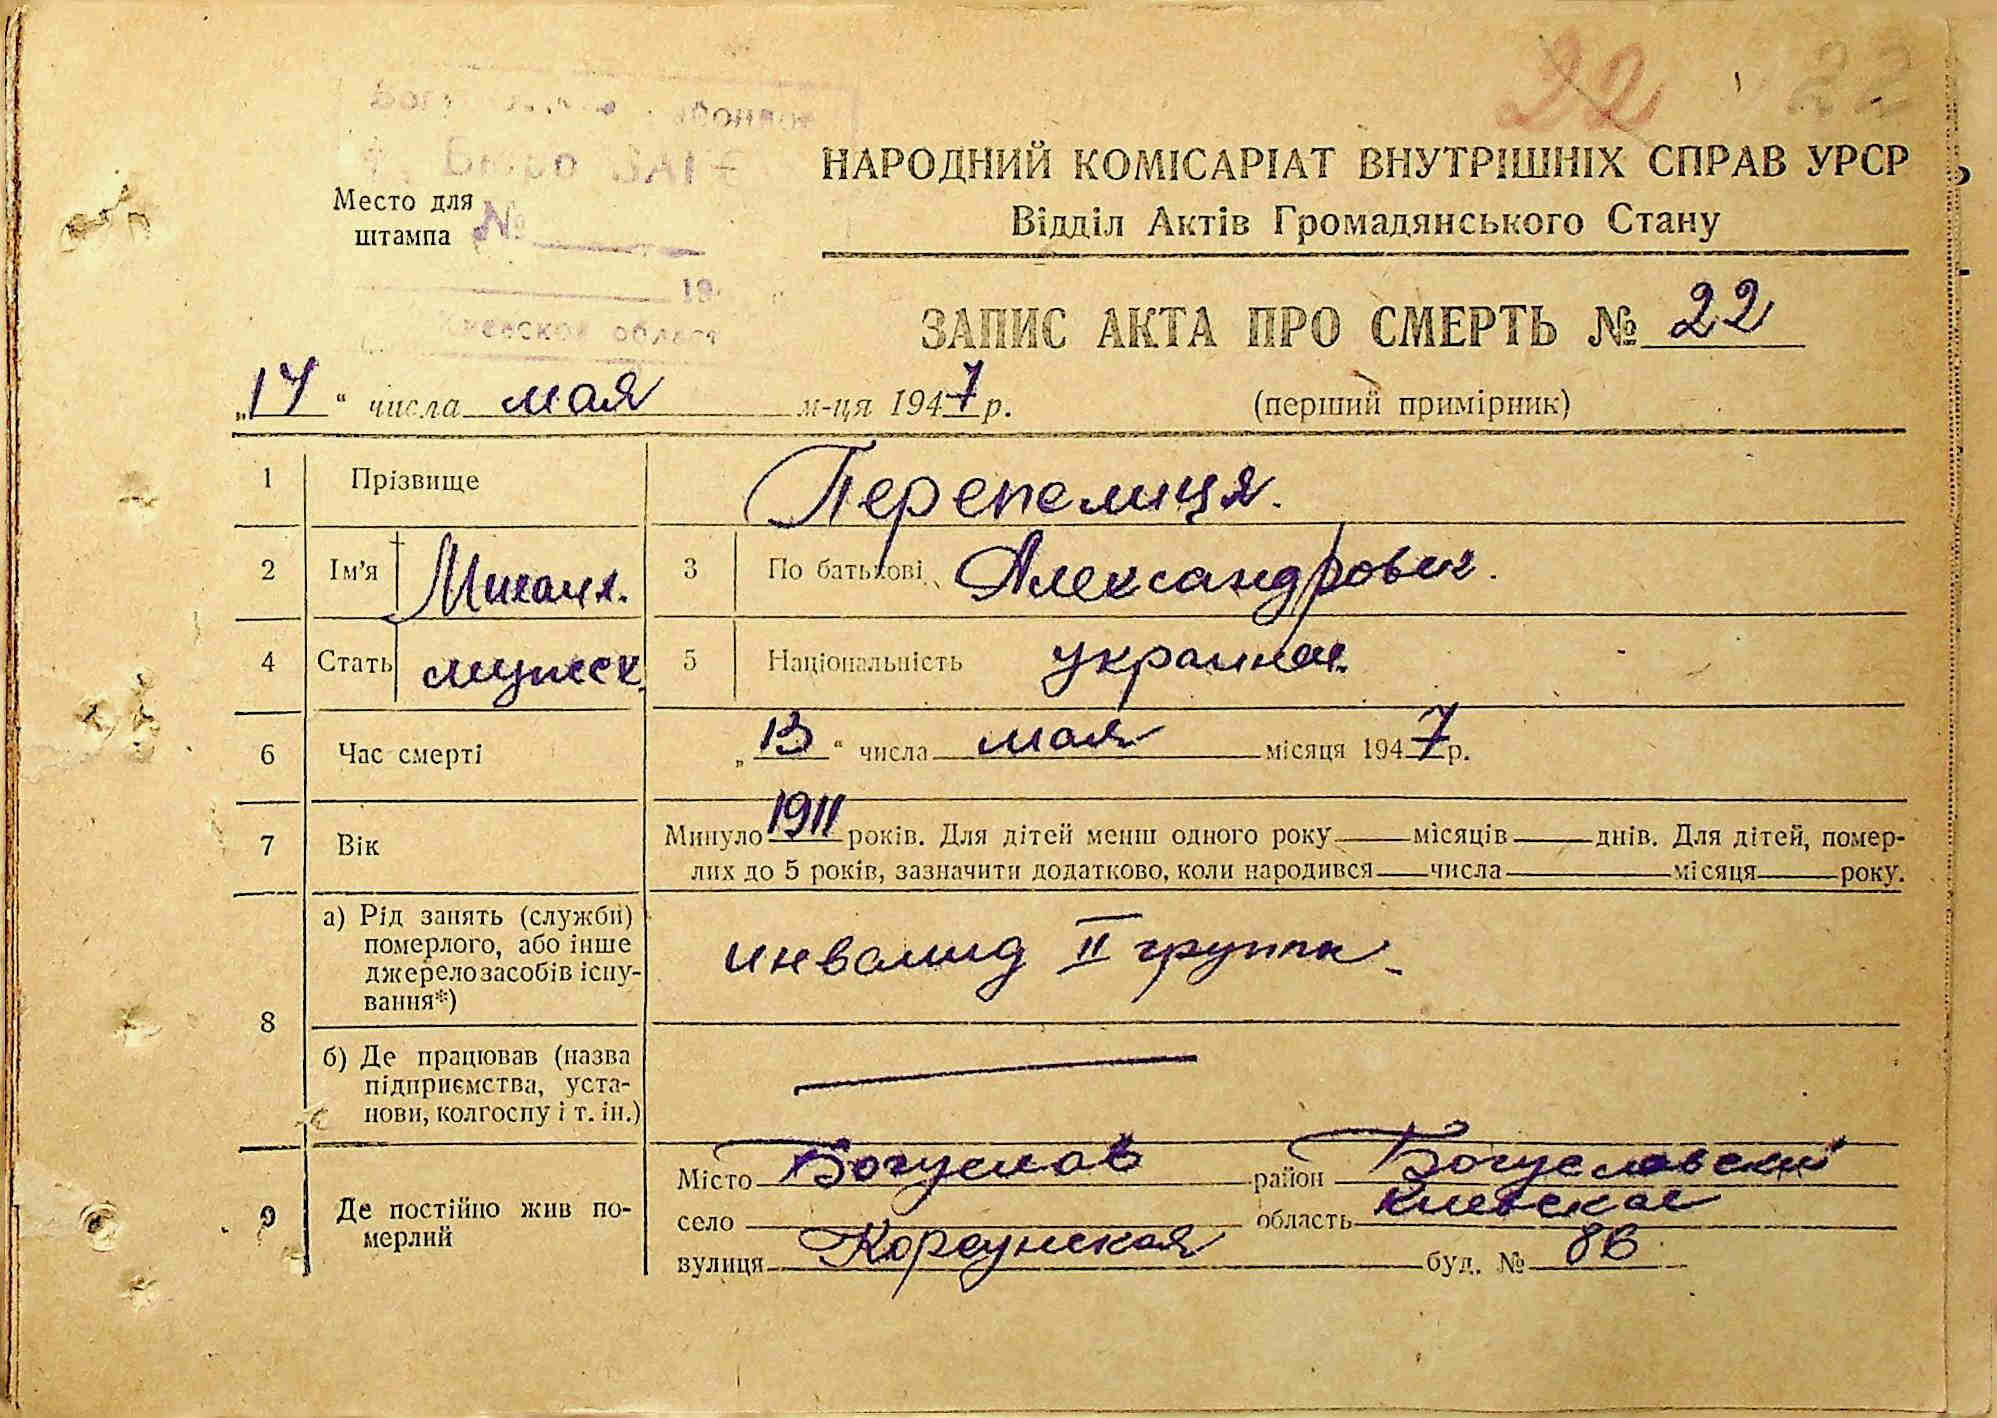 22 22
НАРОДНИЙ КОМІСАРІАТ ВНУТРІШНІХ СПРАВ УРСР
Відділ Актів Громадянського Стану
Место для
штампа
№
19
Киевской област
ЗАПИС АКТА ПРО СМЕРТЬ № 22
„14“ числа мая м-ця 1947 р. (перший примірник)
1 Прізвище Перепелиця.
2 Ім'я Михаил. 3 По батькові Александрович.
4 Стать мужск. 5 Національність украинец.
6 Час смерті „13“ числа мая місяця 1947 р.
7 Вік Минуло 1911 років. Для дітей менш одного року місяців днів. Для дітей, помер-
лих до 5 років, зазначити додатково, коли народився числа місяця року.
8 а) Рід занять (служби)
померлого, або інше
джерело засобів існу-
вання*)
инвалид II группы.
б) Де працював (назва
підприємства, уста-
нови, колгоспу і т. ін.)
9 Де постійно жив по-
мерлий
Місто Богуслав район Богуславский
село область Киевская
вулиця Корсунская буд. № 86